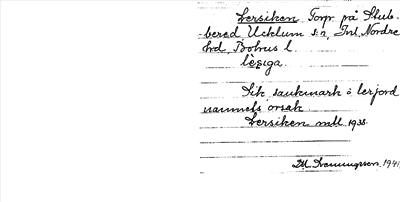 Lersiken Torp. på Stub-
bered Ucklum s:n, Inl. Nordre
hd, Bohus l.
lèsiga.
Sik sankmark å lerjord
namnets orsak.
Lersiken mtl 1938.
1941